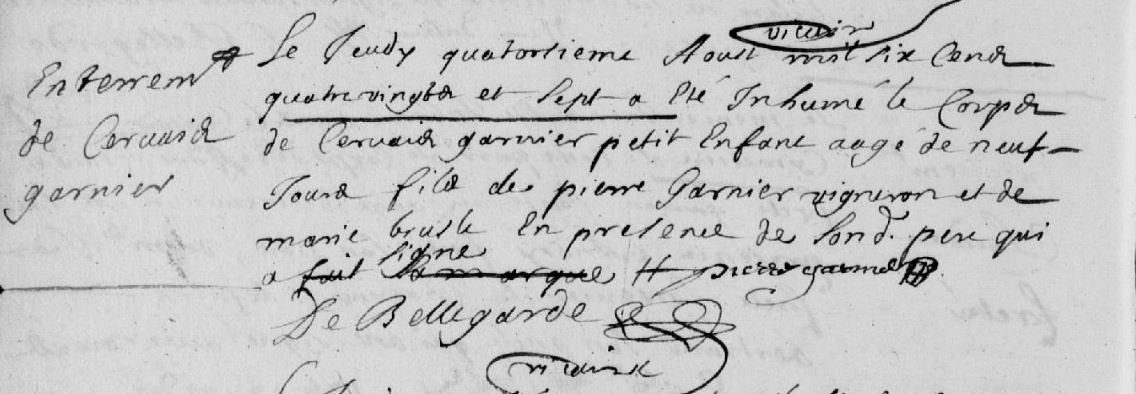 vicaire
Enterrem^t
de Cervais
garnier
Le Jeudy quatorsieme Aoust mil six Cens
quatrevingts et sept a Eté Inhumé le Corps
de Cervais garnier petit Enfant aagé de neuf
Jours fils de pierre Garnier vigneron et de
marie brusle En presence de sond. pere qui
signe
a fait sa marque # pierre garnier
De Bellegarde
vicaire